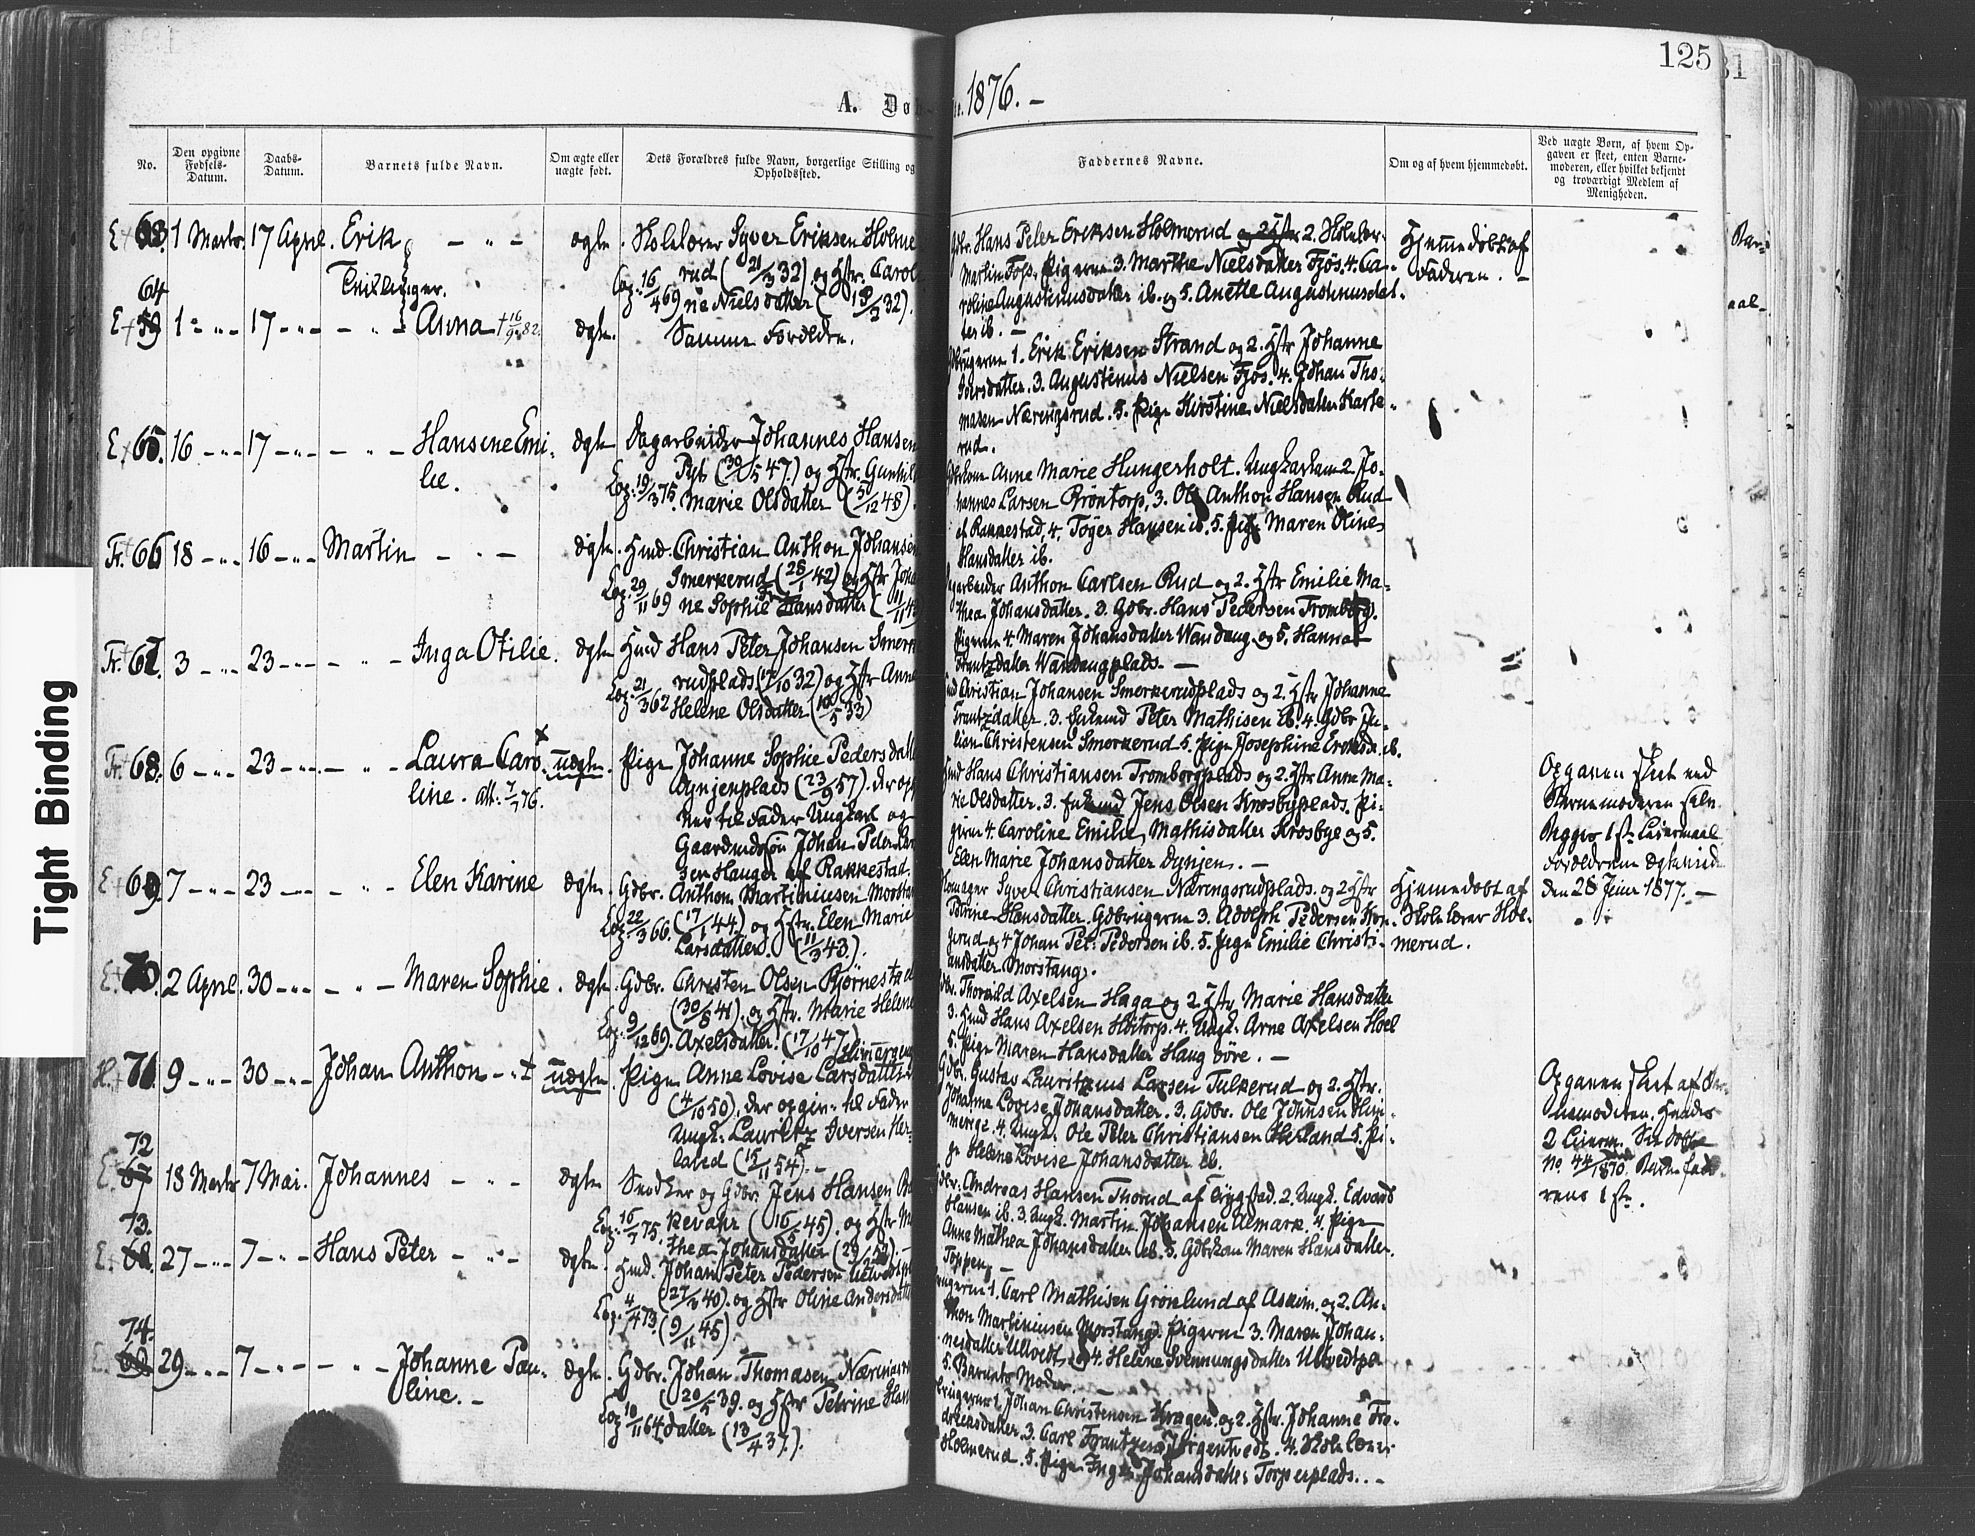 125
A. Døb 1876. –
No.
Den opgivne Fødsels-Datum.
Daabs-Datum.
Barnets fulde Navn.
Om ægte eller uægte født.
Dets Forældres fulde Navn, borgerlige Stilling og Opholdssted.
Faddernes Navne.
Om og af hvem hjemmedøbt.
Ved uægte Børn, af hvem Opgaven er skeet, enten Barnemoderen, eller hvilket bekjendt og troværdigt Medlem af Menigheden.
63. 1 Marts. 17 April. Erik – " – ægte. Skolelærer Syver Eriksen Holme
rud (21/3 32) og Hstr. Carol
16/4 69 ne Nielsdatter
Hans Peter Eriksen Holmerud 2. Skolelær.
Martin Foss, Pigerne 3. Marthe Nielsdatter Fjøs. 4. Ca-
roline Augustinusdatter ib. og 5. Anette Augustinusdat-
ter ib. –
Hjemmedøbt af
Faderen. –
Tvillinger.
64
59 1 – " – 17 – " – Anna † 16/9 82. ægte. Samme Forældre.
1. Erik Eriksen Strand og 2. Hstr Johanne
Iversdatter. 3. Augustinus Nielsen Fjøs. 4. Johan Tho-
masen Næringsrud. 5. Pige Kirstine Nielsdatter Karle-
rud.
65. 16 – " – 17 – " – Hansine Emi-
lie. ægte Dagarbeider Johannes Hansen
(30/5 47.) og Hstr. Gunhil
19/3 75. Marie Olsdatter (5/12 48).
Anne Marie Hungerholt. Ungkarlene 2. Jo-
hannes Larsen Brøntorp, 3. Ole Anthon Hansen Rud
af Rakkestad, 4. Tøger Hansen ib. 5. Pige Maren Oline
Hansdatter ib.
Fr. 66 18 – " – 16 – " – Martin – " – ægte. Hmd. Christian Anthon Johansen
Smerkerud (28/1 42) og Hstr Joha
29/11 69 ne Sophie Hansdatter
Anthon Carlsen Rud og 2. Hstr Emilie Ma-
thea Johansdatter. 3. Gdbr. Hans Pedersen Tromborg.
Pigerne 4. Maren Johansdatter Vandaug og 5. Hanna
Frantzdatter Vandaugplads. –
Fr. 67. 3 – " – 23 – " – Inga Otilie. ægte Hmd Hans Peter Johansen Smerke
rudplads (17/10 32) og Hstr Anne
21/3 62 Helene Olsdatter (10/5 33)
Christian Johansen Smerkerudplads og 2. Hstr Johanne
Frantzdatter. 3. Enkemd Peter Mathisen ib. 4. Gdbr Ju-
lian Christensen Smerkerud 5. Pige Josephine
Fr. 68. 6 – " – 23 – " – Laura Caro-
line. att. 7/7 76. uægte. Pige Johanne Sophie Pedersdatter
(23/9 57). Der opgi
ver til Fader Ungkarl og
Gaardmdsøn Johan Peter Lar
sen Haugen af Rakkestad.
Hans Christiansen Tromborgplads og 2. Hstr Anne Ma-
rie Olsdatter. 3. Enkemd Jens Olsen Krosbyplads. Pi-
gerne 4. Caroline Emilie Mathisdatter Krosbye og 5.
Elen Marie Johansdatter Dynjen. –
Opgaven skeet ved
Barnemoderen selv.
Begges 1ste Leiermaal
Forældrene ægteviede
den 28 Jenuar 1877. –
69. 7 – " – 23 – " – Elen Karine ægte. Gdbr. Anthon Martiniusen Morstan
22/3 66. (17/1 44.) og Hstr. Elen Marie
Larsdatter. (11/3 43.).
Syver Christiansen Næringsrudplads. og 2 Hstr
Petrine Hansdatter. Gdbrugerne 3. Adolph Pedersen Kon-
gerud og 4 Johan Pet. Pedersen ib. 5. Pige Emilie Christi-
ansdatter Morstang.
Hjemmedøbt af
Skolelærer Hol-
merud.
70. 2 April. 30 – " – Maren Sophie. ægte. Gdbr. Christen Olsen Bjørnestad
(30/8 41). og Hstr. Marie Helene
9/12 69. Axelsdatter. (17/10 47)
Thorvild Axelsen Haga og 2 Hstr. Marie Hansdatter
3. Hmd Hans Axelsen Høitorp. 4. Ungk. Arne Axelsen Hoel
5. Pige Maren Hansdatter Haug Øvre. –
71. 9 – " – 30 – " – Johan Anthon – " – uægte. Pige Anne Lovise Larsdatter
(4/10 50). Der opgiv. til Fader
Ungk. Lauritz Iversen Her-
(15/11 54). –
Gdbr. Gustav Lauritzius Larsen Tulkerud og 2. Hstr.
Johanne Lovise Johansdatter. 3. Gdbr. Ole Johnsen Him-
merge 4. Ungk. Ole Peter Christiansen Herland 5. Pi-
ge Helene Lovise Johansdatter ib.
Opgaven skeet af Bar-
nemoderen. Hendes
2 Leierm. See døbte
No 44/1870. Barnefad-
rens 1ste.
72
67 18 Marts 7 Mai. Johannes – " – ægte Snedker og Gdbr. Jens Hansen
16/7 75. (16/5 45). og Hstr Ma
thea Johansdatter
Andreas Hansen Thorud af Trygstad. 2. Ungk. Edvard
Hansen ib. 3. Ungk. Martin Johansen Ulmark 4. Pige
Anne Mathea Johansdatter ib. 5. Gdbrkone Maren Hansdatter
Toppen. –
73.
27 – " – 7 – " – Hans Peter – " – ægte. Hmd. Johan Peter Pedersen Utvedtpl
4/4 73. (27/3 40). og Hstr Oline Andersdatter
(9/11 45)
1. Carl Mathisen Grønlund af Askim. og 2. An-
thon Martiniusen Morstang. Pigerne 3. Maren Johan-
nesdatter Utvedt og 4. Helene Svenningsdatter Utvedtpl.
5. Barnets Moder. –
74.
69 29 – " – 7 – " – Johanne Pau-
line. – ægte. Gdbr. Johan Thomasen Næringsr
(20/5 39. og Hstr Petrine Han
10/11 64 datter (13/4 37).
1 Johan Christensen Kragen og 2. Hstr. Johanne Fre-
driksdatter. 3. Carl Frantzen Jørgentvedt. 4. Skolelærer
Holmerud. 5. Pige Inga Johansdatter Torperplads. –
Tight Binding